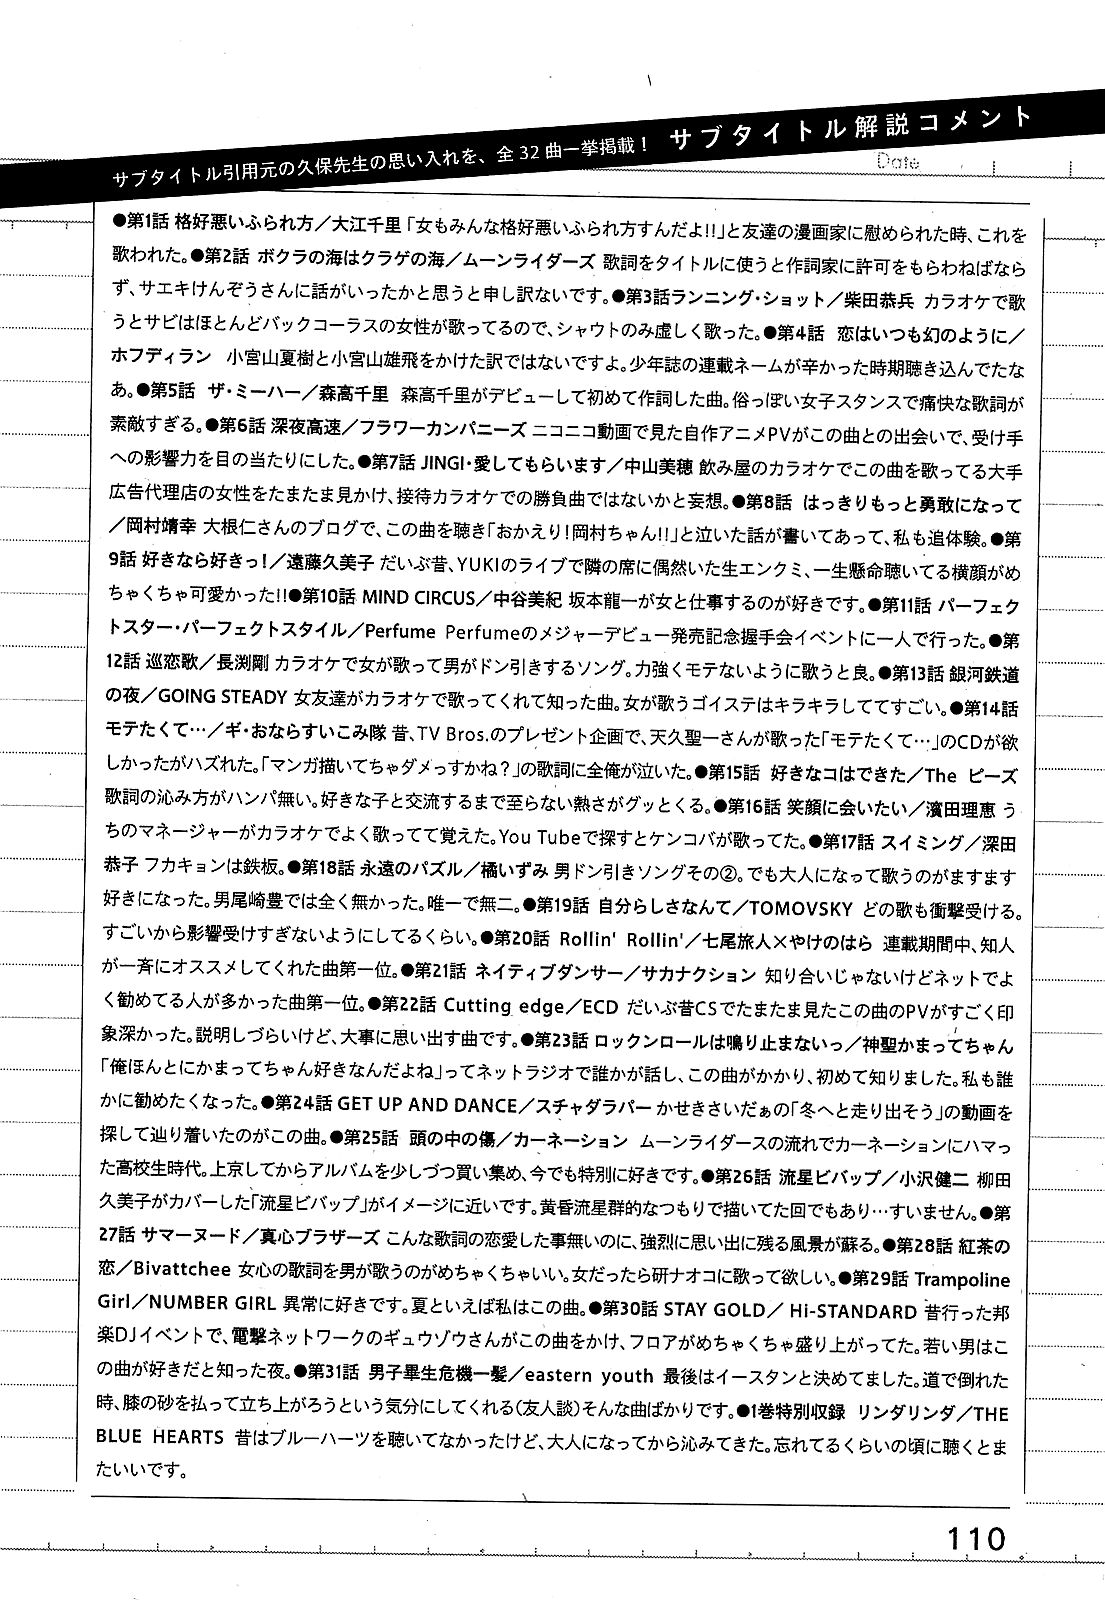 サブタイトル引用元の久保先生の思い入れを、全32曲一挙掲載！ サブタイトル解説コメント
Date
●第1話 格好悪いふられ方／大江千里「女もみんな格好悪いふられ方すんだよ!!」と友達の漫画家に慰められた時、これを
歌われた。●第2話 ボクラの海はクラゲの海／ムーンライダーズ 歌詞をタイトルに使うと作詞家に許可をもらわねばなら
ず、サエキけんぞうさんに話がいったかと思うと申し訳ないです。●第3話ランニング・ショット／柴田恭兵 カラオケで歌
うとサビはほとんどバックコーラスの女性が歌ってるので、シャウトのみ虚しく歌った。●第4話 恋はいつも幻のように／
ホフディラン 小宮山夏樹と小宮山雄飛をかけた訳ではないですよ。少年誌の連載ネームが辛かった時期聴き込んでたな
あ。●第5話 ザ・ミーハー／森高千里 森高千里がデビューして初めて作詞した曲。俗っぽい女子スタンスで痛快な歌詞が
素敵すぎる。●第6話 深夜高速／フラワーカンパニーズ ニコニコ動画で見た自作アニメPVがこの曲との出会いで、受け手
への影響力を目の当たりにした。●第7話 JINGI・愛してもらいます／中山美穂 飲み屋のカラオケでこの曲を歌ってる大手
広告代理店の女性をたまたま見かけ、接待カラオケでの勝負曲ではないかと妄想。●第8話 はっきりもっと勇敢になって
／岡村靖幸 大根仁さんのブログで、この曲を聴き「おかえり!岡村ちゃん!!」と泣いた話が書いてあって、私も追体験。●第
9話 好きなら好きっ!／遠藤久美子 だいぶ昔、YUKIのライブで隣の席に偶然いた生エンクミ、一生懸命聴いてる横顔がめ
ちゃくちゃ可愛かった!!●第10話 MIND CIRCUS／中谷美紀 坂本龍一が女と仕事するのが好きです。●第11話 パーフェク
トスター・パーフェクトスタイル／Perfume Perfumeのメジャーデビュー発売記念握手会イベントに一人で行った。●第
12話 巡恋歌／長渕剛 カラオケで女が歌って男がドン引きするソング。力強くモテないように歌うと良。●第13話 銀河鉄道
の夜／GOING STEADY 女友達がカラオケで歌ってくれて知った曲。女が歌うゴイステはキラキラしててすごい。●第14話
モテたくて…／ギ・おならすいこみ隊 昔、TV Bros.のプレゼント企画で、天久聖一さんが歌った「モテたくて…」のCDが欲
しかったがハズれた。「マンガ描いてちゃダメっすかね?」の歌詞に全俺が泣いた。●第15話 好きなコはできた／The ピーズ
歌詞の沁み方がハンパ無い。好きな子と交流するまで至らない熱さがグッとくる。●第16話 笑顔に会いたい／濱田理恵 う
ちのマネージャーがカラオケでよく歌ってて覚えた。You Tubeで探すとケンコバが歌ってた。●第17話 スイミング／深田
恭子 フカキョンは鉄板。●第18話 永遠のパズル／橘いずみ 男ドン引きソングその②。でも大人になって歌うのがますます
好きになった。男尾崎豊では全く無かった。唯一で無二。●第19話 自分らしさなんて／TOMOVSKY どの歌も衝撃受ける。
すごいから影響受けすぎないようにしてるくらい。●第20話 Rollin' Rollin'／七尾旅人×やけのはら 連載期間中、知人
が一斉にオススメしてくれた曲第一位。●第21話 ネイティブダンサー／サカナクション 知り合いじゃないけどネットでよ
く勧めてる人が多かった曲第一位。●第22話 Cutting edge／ECD だいぶ昔CSでたまたま見たこの曲のPVがすごく印
象深かった。説明しづらいけど、大事に思い出す曲です。●第23話 ロックンロールは鳴り止まないっ／神聖かまってちゃん
「俺ほんとにかまってちゃん好きなんだよね」ってネットラジオで誰かが話し、この曲がかかり、初めて知りました。私も誰
かに勧めたくなった。●第24話 GET UP AND DANCE／スチャダラパー かせきさいだぁの「冬へと走り出そう」の動画を
探して辿り着いたのがこの曲。●第25話 頭の中の傷／カーネーション ムーンライダースの流れでカーネーションにハマっ
た高校生時代。上京してからアルバムを少しづつ買い集め、今でも特別に好きです。●第26話 流星ビバップ／小沢健二 柳田
久美子がカバーした「流星ビバップ」がイメージに近いです。黄昏流星群的なつもりで描いてた回でもあり…すいません。●第
27話 サマーヌード／真心ブラザーズ こんな歌詞の恋愛した事無いのに、強烈に思い出に残る風景が蘇る。●第28話 紅茶の
恋／Bivattchee 女心の歌詞を男が歌うのがめちゃくちゃいい。女だったら研ナオコに歌って欲しい。●第29話 Trampoline
Girl／NUMBER GIRL 異常に好きです。夏といえば私はこの曲。●第30話 STAY GOLD／ Hi-STANDARD 昔行った邦
楽DJイベントで、電撃ネットワークのギュウゾウさんがこの曲をかけ、フロアがめちゃくちゃ盛り上がってた。若い男はこ
の曲が好きだと知った夜。●第31話 男子畢生危機一髪／eastern youth 最後はイースタンと決めてました。道で倒れた
時、膝の砂を払って立ち上がろうという気分にしてくれる(友人談)そんな曲ばかりです。●1巻特別収録 リンダリンダ／THE
BLUE HEARTS 昔はブルーハーツを聴いてなかったけど、大人になってから沁みてきた。忘れてるくらいの頃に聴くとま
たいいです。
110